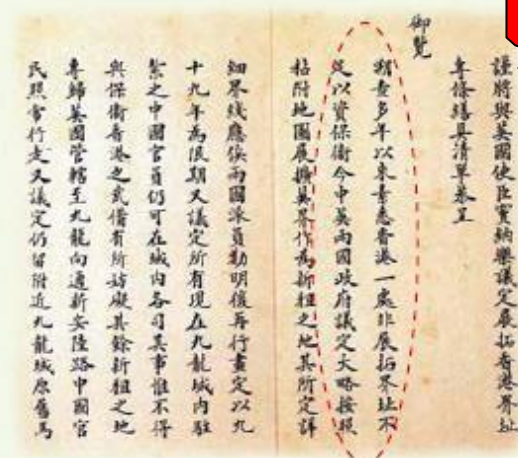 謹將與英國使臣竇納樂議定展拓香港界址
專條繕具清單恭呈
御覽
溯查多年以來素悉香港一處非展拓界址不
足以資保衛今中英兩國政府議定大略按照
粘附地圖展擴英界作為新租之地其所定詳
細界線應俟兩國派員勘明後再行畫定以九
十九年為限期又議定所有現在九龍城內駐
紮之中國官員仍可在城內各司其事惟不得
與保衛香港之武備有所妨礙其餘新租之地
專歸英國管轄至九龍向通新安陸路中國官
民照常行走又議定仍留附近九龍城原舊馬